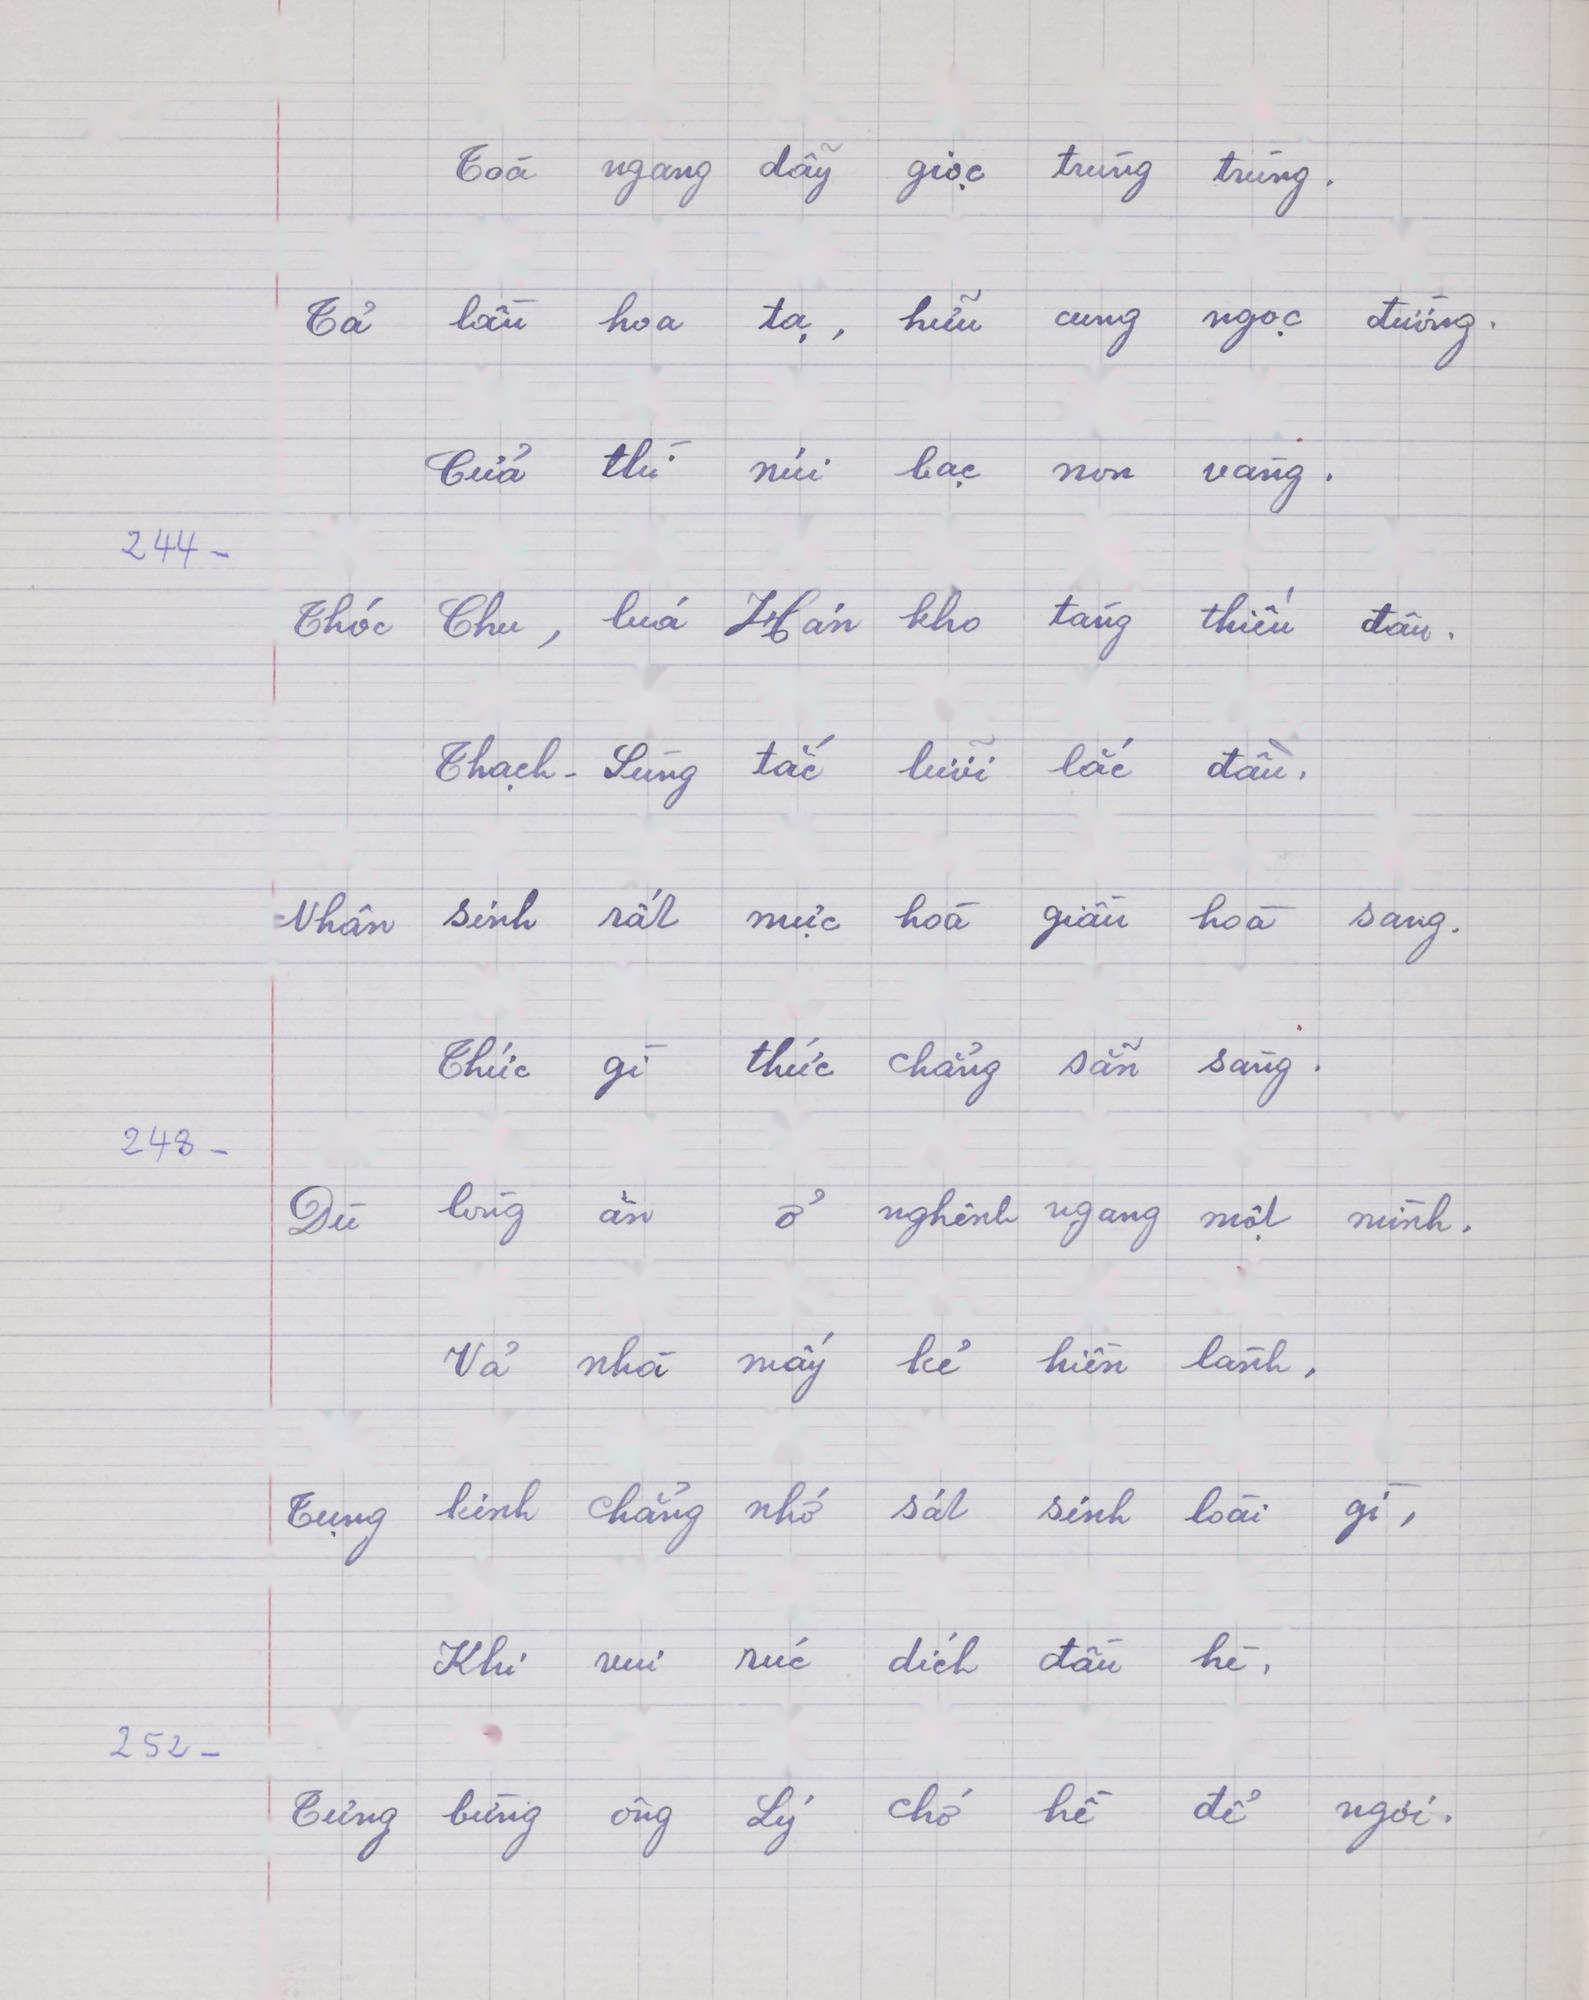 Toà ngang dẫy giọc trùng trùng.
Tả lầu hoa tạ, hữu cung ngọc đường.
Của thì núi bạc non vàng.
244 -
Thóc Chu, luá Hán kho tàng thiếu đâu.
Thạch - Sùng tắc lưỡi lắc đầu.
Nhân sinh rất mực hoà giầu hoà sang.
Thức gì thức chẳng sẵn sàng.
248 -
Dù lòng ăn ở nghênh ngang một mình.
Vả nhà mấy kẻ hiền lành,
Tụng kinh chẳng nhớ sát sinh loài gì,
Khi vui rúc dích đầu hè,
252 -
Tưng bừng ông Lý chớ hề để ngơi.